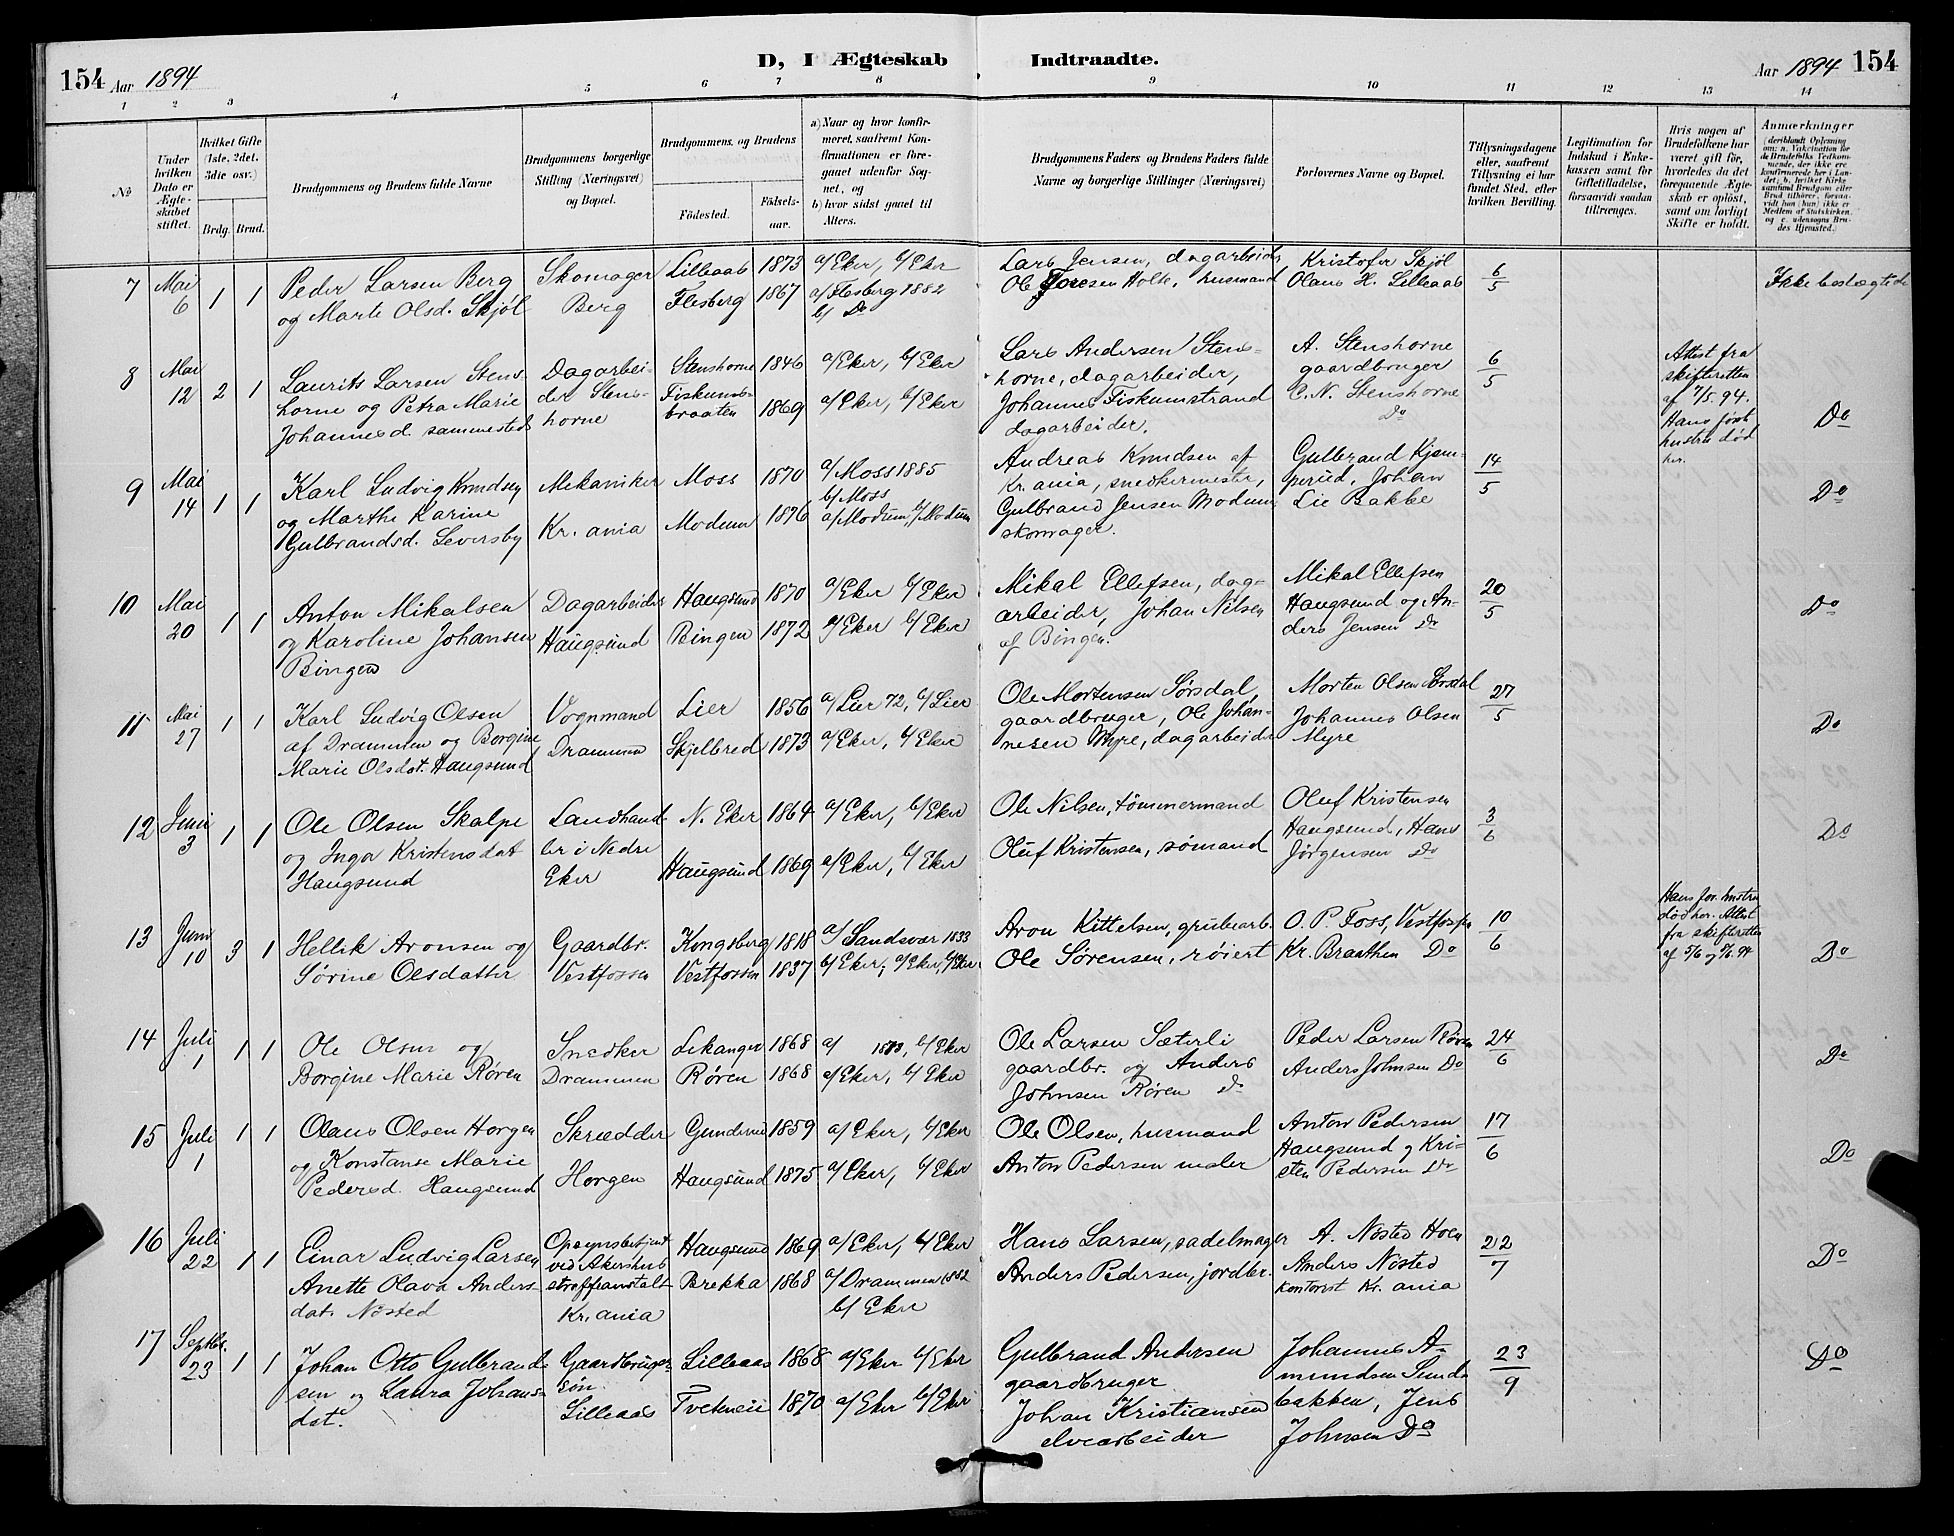 154 Aar 1894 D, I Ægteskab Indtraadte. Aar 1894 154
1 2 3 4 5 6 7 8 9 10 11 12 13 14
No
Under hvilken Dato er Ægteskabet stiftet.
Hvilket Gifte (1ste, 2det, 3die osv.)
Brdg. Brud.
Brudgommens og Brudens fulde Navne
Brudgommens borgerlige Stilling (Næringsvei) og Bopæl.
Brudgommens, og Brudens
Fødested.
Fødselsaar.
a) Naar og hvor konfirmeret, saafremt Konfirmationen er foregaaet udenfor Sognet, og
b) hvor sidst gaaet til Alters.
Brudgommens Faders og Brudens Faders fulde Navne og borgerlige Stillinger (Næringsvei)
Forlovernes Navne og Bopæl.
Tillysningsdagene eller, saafremt Tillysning ei har fundet Sted, efter hvilken Bevilling.
Legitimation for Indskud i Enkekassen samt for Giftetilladelse, forsaavidt saadan tiltrænges.
Hvis nogen af Brudefolkene har været gift før, hvorledes da det foregaaende Ægteskab er opløst, samt om lovligt Skifte er holdt.
Anmærkninger
(deriblandt Oplysning om: a. Vakcination for de Brudefolks Vedkommende, der ikke ere konfirmerede her i Landet; b. hvilket Kirkesamfund Brudgom eller Brud tilhører, forsaavidt han (hun) ikke er Medlem af Statskirken, og c. udensogns Brudes Hjemsted.)
7 Mai 6 1 1
Peder Larsen Berg
og Marte Olsd. Skjøl
Skomager
Berg
Lilleaas 1873 a/Eker, b/Eker
Flesberg 1867 a/Flesberg 1882
b/ Do
Lars Jensen, dagarbeider
Ole Toresen Holte, husmand
Kristofer Skjøl
Olaus H. Lilleaas
6/5
Ikke beslægtede
8 Mai 12 2 1
Laurits Larsen Stens-
horne og Petra Marie
Johannesd. sammested
Dagarbei-
der Stens-
horne
Stenshorne 1846 a/Eker, b/Eker
Fiskums-
braaten 1869 a/Eker, b/Eker
Lars Andersen Stens-
horne, dagarbeider,
Johannes Fiskumstrand
dagarbeider.
A. Stenshorne
gaardbruger
C. N. Stenshorne
Do
6/5
Attest fra
skifteretten
af 7/5. 94.
Hans første
hustru død
her.
Do
9 Mai 14 1 1
Karl Ludvig Knudsen
og Marthe Karine
Gulbrandsd. Leversby
Mekaniker
Kr. ania
Moss 1870 a/Moss 1885
b/Moss
Modum 1876 a/Modum, b/Modum
Andreas Knudsen af
Kr. ania, snedkermester,
Gulbrand Jensen Modum
skomager.
Gulbrand Kjem-
perud, Johan
Lie Bakke
14/5
Do
10 Mai 20 1 1
Anton Mikalsen
og Karoline Johansen
Bingen
Dagarbeider
Haugsund
Haugsund 1870 a/Eker b/Eker
Bingen 1872 a/Eker b/Eker
Mikal Ellefsen, dag-
arbeider, Johan Nilsen
af Bingen.
Mikal Ellefsen
Haugsund og An-
ders Jensen Do
20/5
Do
11 Mai 27 1 1
Karl Ludvig Olsen
af Drammen og Borgine
Marie Olsdat. Haugsund
Vognmand
Drammen
Lier 1856 a/Lier 72, b/Lier
Skjelbred 1873 a/Eker, b/Eker
Ole Mortensen Sørsdal,
gaardbruger, Ole Johan-
nesen Myre, dagarbeider
Morten Olsen Sørsdal
Johannes Olsen
Myre
27/5
Do
12 Juni 3 1 1
Ole Olsen Skalpe
og Inga Kristensdat
Haugsund
Landhand-
ler i Nedre
Eker
N. Eker 1864 a/Eker, b/Eker
Haugsund 1869 a/Eker, b/Eker
Ole Nilsen, tømmermand
Oluf Kristensen, sømand
Oluf Kristensen
Haugsund, Hans
Jørgensen Do
3/6
Do
13 Juni 10 3 1
Hellik Aronsen og
Sørine Olsdatter
Gaardbr.
Vestfossen
Kongsberg 1818 a/Sandsvær 1833
Vestfossen 1837 b/Eker, a/Eker, b/Eker
Aron Kittelsen, grubearb.
Ole Sørensen, røiert
O. P. Foss, Vestfossen
Kr. Braathen Do
10/6
Hans for. hustru
død her. Attest
fra skifteretten
Do
14 Juli 1 1 1
Ole Olsen og
Borgine Marie Røren
Snedker
Drammen
Lekanger 1868 a/ 1883, b/Eker
Røren 1868 a/Eker, b/Eker
Ole Larsen Sæterli
gaardbr. og Anders
Johnsen Røren Do
Peder Larsen Røren
Anders Johnsen Do
24/6
Do
15 Juli 1 1 1
Olaus Olsen Horgen
og Konstanse Marie
Pedersd. Haugsund
Skrædder
Horgen
Gunderud 1859 a/Eker, b/Eker
Haugsund 1875 a/Eker, b/Eker
Ole Olsen, husmand
Anton Pedersen maler
Anton Pedersen
Haugsund og Kri-
sten Pedersen Do
17/6
Do
16 Juli 22 1 1
Einar Ludvig Larsen
Anette Olava Anders-
dat. Nøsted
Opsynsbetjent
ved Akershus
straffeanstalt
Kr. ania
Haugsund 1869 a/Eker, b/Eker
Brekka 1868 a/Drammen 1882
b/Eker
Hans Larsen, sadelmager
Anders Pedersen, jordbr.
A. Nøsted Hoen
Anders Nøsted
kontorist Kr. ania
22/7
Do
17 Septbr. 23 1 1
Johan Otto Gulbrand-
sen og Laura Johans-
dat.
Gaardbruger-
søn
Lilleaas
Lilleaas 1868 a/Eker b/Eker
Tveteneie 1870 a/Eker b/Eker
Gulbrand Andersen
gaardbruger
Johan Kristiansen
elvearbeider
Johannes A-
mundsen Sunds-
bakken, Jens
Johnsen Do
23/9
Do